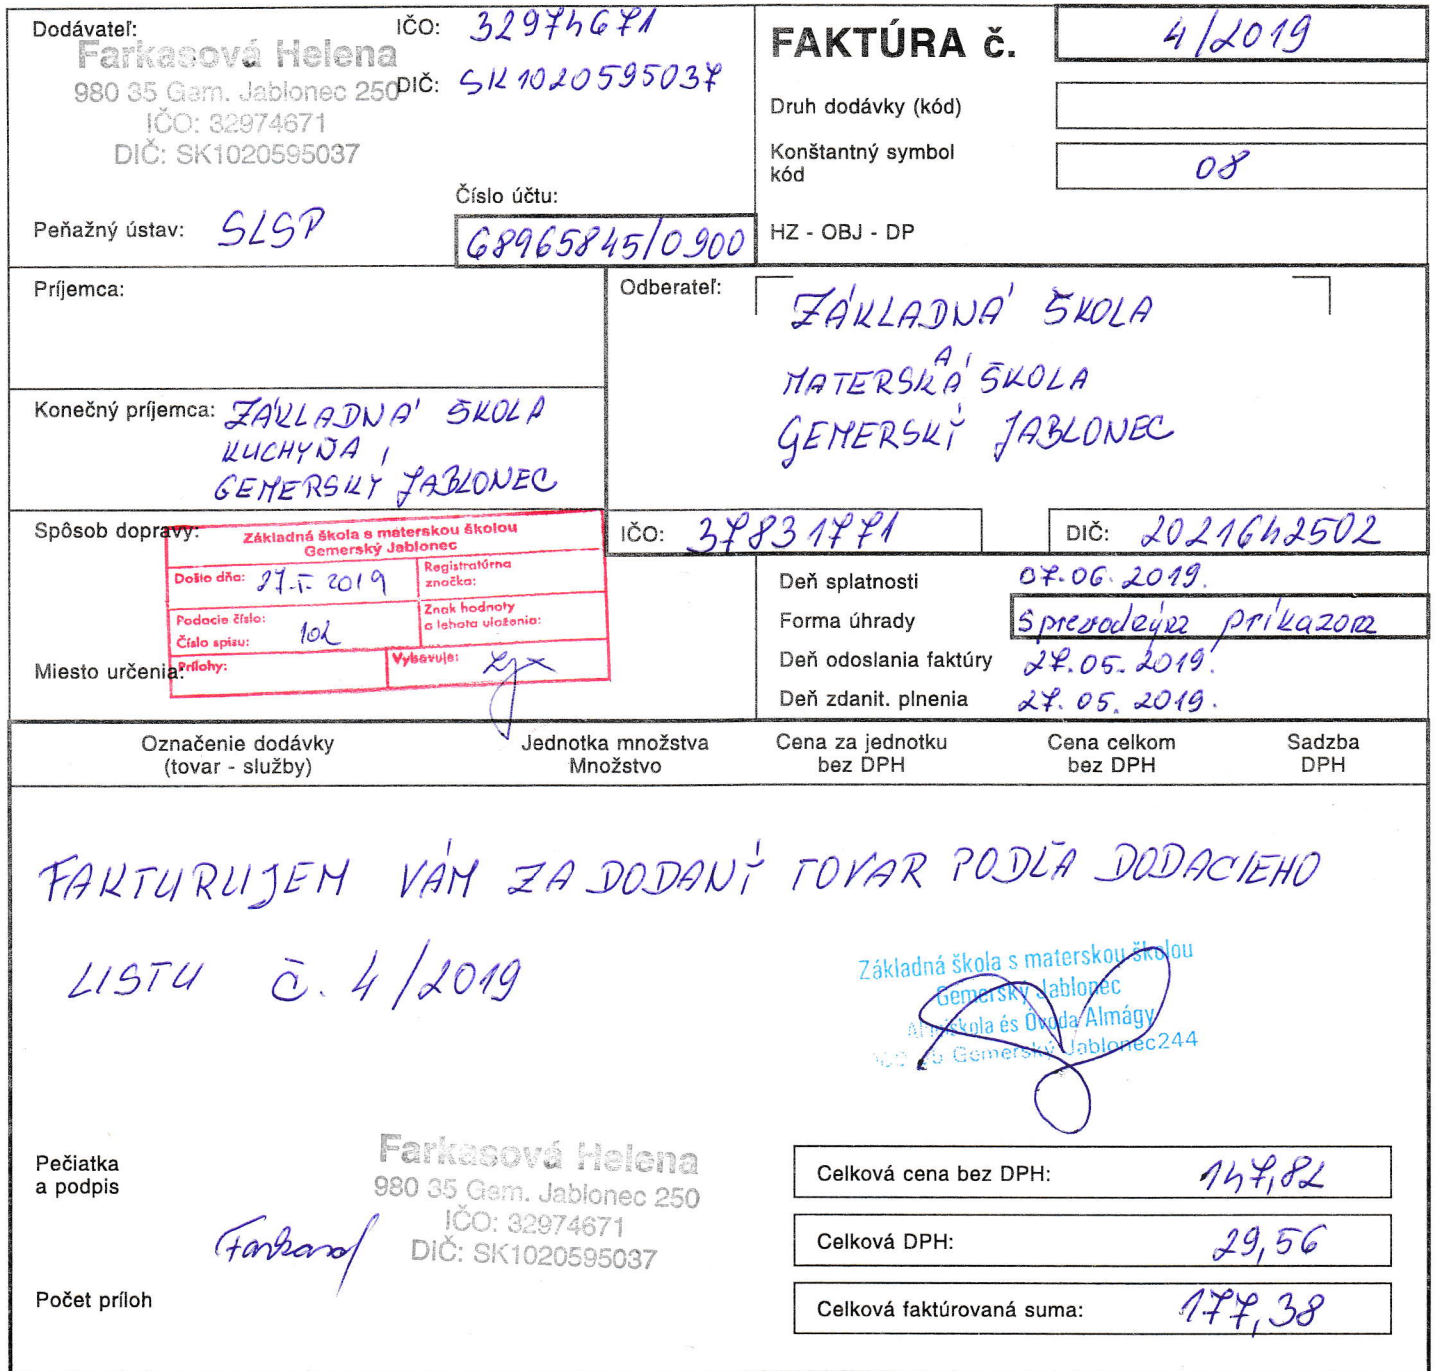 Dodávateľ:
Farkasová Helena
980 35 Gem. Jablonec 250
IČO: 32974671
DIČ: SK1020595037
IČO: 32974671
DIČ: SK1020595037
Peňažný ústav: SLSP
Číslo účtu:
68965845/0900
FAKTÚRA č. 4/2019
Druh dodávky (kód)
Konštantný symbol
kód 08
HZ - OBJ - DP
Príjemca:
Konečný príjemca: ZÁKLADNÁ ŠKOLA
KUCHYŇA,
GEMERSKÝ JABLONEC
Odberateľ:
ZÁKLADNÁ ŠKOLA
A
MATERSKÁ ŠKOLA
GEMERSKÝ JABLONEC
IČO: 37831771
DIČ: 2021642502
Spôsob dopravy:
Základná škola s materskou školou
Gemerský Jablonec
Došlo dňa: 27.5. 2019
Registratúrna
značka:
Podacie číslo:
Číslo spisu: 102
Znak hodnoty
a lehota uloženia:
Prílohy:
Vybavuje:
Miesto určenia:
Deň splatnosti 07.06.2019.
Forma úhrady Sprevodným príkazom
Deň odoslania faktúry 27.05.2019.
Deň zdanit. plnenia 27.05.2019.
Označenie dodávky
(tovar - služby)
Jednotka množstva
Množstvo
Cena za jednotku
bez DPH
Cena celkom
bez DPH
Sadzba
DPH
FAKTURUJEM VÁM ZA DODANÝ TOVAR PODĽA DODACIEHO
LISTU Č. 4/2019
Základná škola s materskou školou
Gemerský Jablonec
Alapiskola és Óvoda Almágy
980 35 Gemerský Jablonec 244
Pečiatka
a podpis
Farkasová Helena
980 35 Gem. Jablonec 250
IČO: 32974671
DIČ: SK1020595037
Počet príloh
Celková cena bez DPH: 147,82
Celková DPH: 29,56
Celková faktúrovaná suma: 177,38